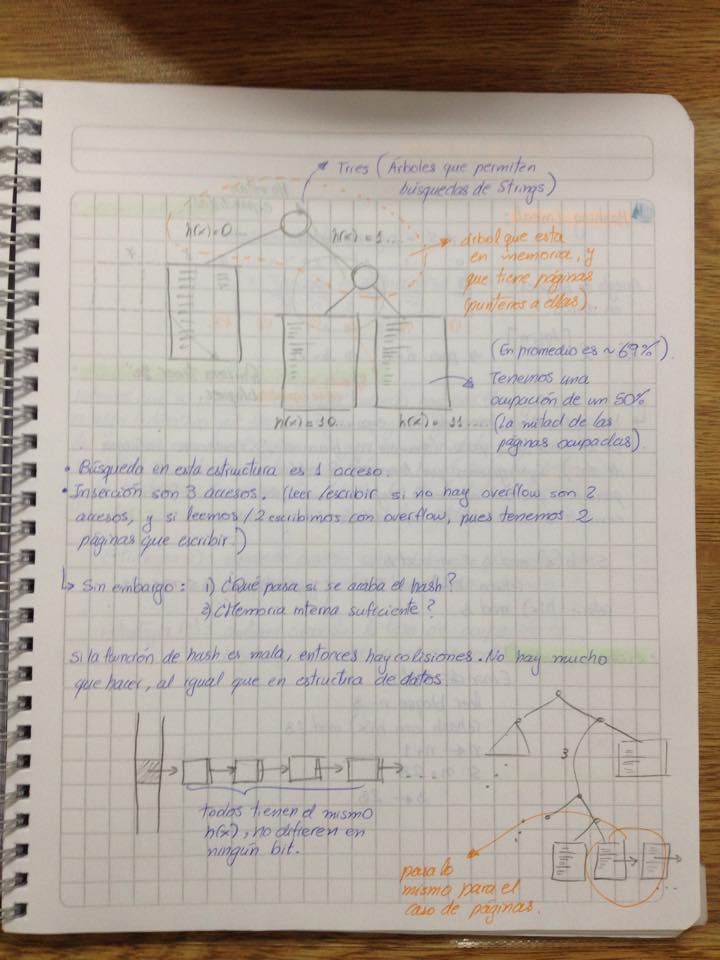 Tries (Árboles que permiten
búsquedas de Strings)
h(x)=0
h(x)=1..
árbol que esta
en memoria, y
que tiene páginas
(punteros a ellas).
(En promedio es ~69%).
Tenemos una
ocupación de un 50%
(la mitad de las
páginas ocupadas).
h(x)=10..
h(x)=11...
• Búsqueda en esta estructura es 1 acceso.
• Inserción son 3 accesos. (leer/escribir si no hay overflow son 2
accesos, y si leemos/2 escribimos con overflow, pues tenemos 2
páginas que escribir.)
↳ Sin embargo: 1) ¿Qué pasa si se acaba el hash?
2) ¿Memoria interna suficiente?
Si la función de hash es mala, entonces hay colisiones. No hay mucho
que hacer, al igual que en estructura de datos
3
todos tienen el mismo
h(x), no difieren en
ningún bit.
pasa lo
mismo para el
caso de páginas.